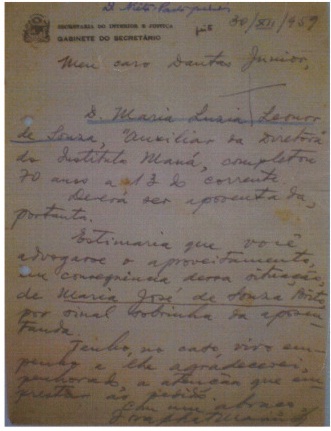 30/XII/959
SECRETARIA DO INTERIOR E JUSTIÇA
GABINETE DO SECRETÁRIO
Meu caro Dantas Junior,
D. Maria Luzia Leonor
de Souza, "Auxiliar da Diretora
do Instituto Maná, completou
70 anos a 13 do corrente
Deverá ser aposentada,
portanto.
Estimaria que você
advogasse o aproveitamento,
em consequencia dessa situação,
de Maria José de Souza
por sinal sobrinha da aposen-
tanda.
Tenho, no caso, vivo em-
penho e lhe agradecerei,
penhorado, a atenção que em-
prestar ao pedido.
Com um abraço